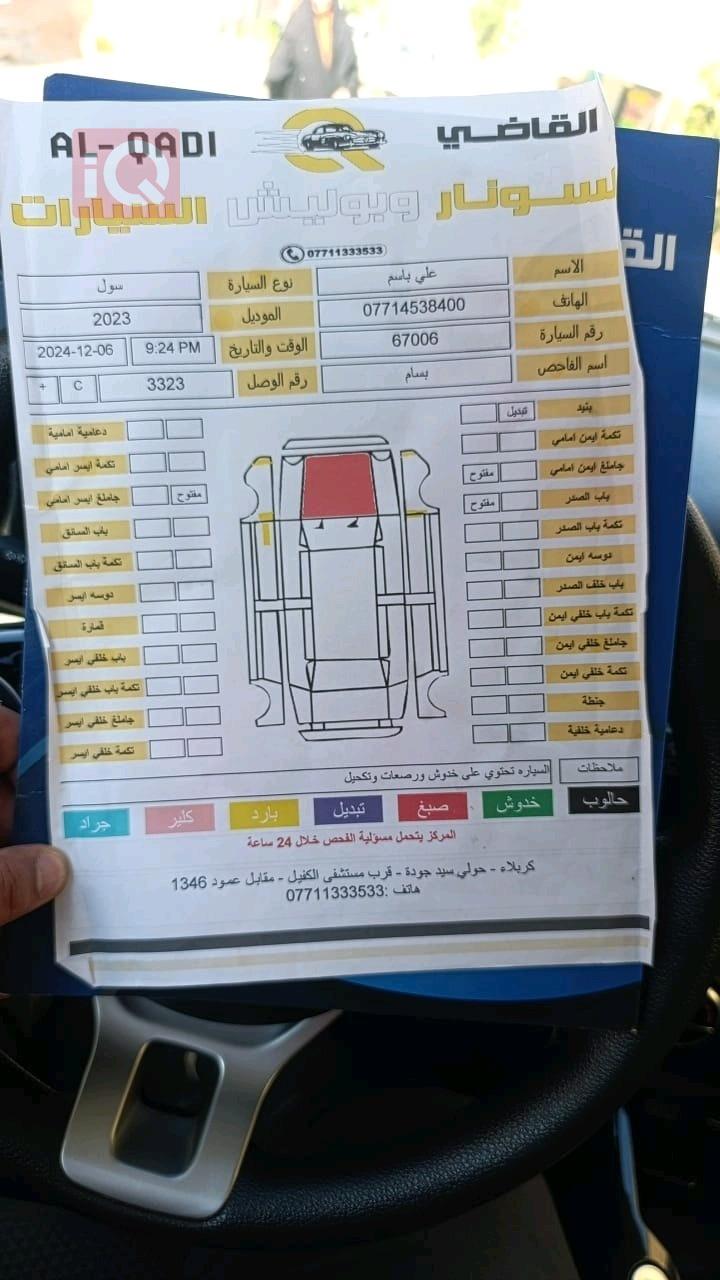 AL-QADI
القاضي
iQ
لسونار وبوليش السيارات
07711333533
الاسم علي باسم نوع السيارة سول
الهاتف 07714538400 الموديل 2023
رقم السيارة 67006 الوقت والتاريخ 9:24 PM 2024-12-06
اسم الفاحص بسام رقم الوصل 3323 C +
بنيد تبديل
دعامية امامية
تكمة ايمن امامي
تكمة ايسر امامي
جاملغ ايمن امامي مفتوح
جاملغ ايسر امامي مفتوح
باب الصدر مفتوح
باب السائق
تكمة باب الصدر
تكمة باب السائق
دوسه ايمن
دوسه ايسر
باب خلف الصدر
قمارة
تكمة باب خلفي ايمن
باب خلفي ايسر
جاملغ خلفي ايمن
تكمة باب خلفي ايسر
تكمة خلفي ايمن
جاملغ خلفي ايسر
جنطة
تكمة خلفي ايسر
دعامية خلفية
ملاحظات السياره تحتوي على خدوش ورصعات وتكحيل
حالوب خدوش صبغ تبديل بارد كلير جراد
المركز يتحمل مسؤلية الفحص خلال 24 ساعة
كربلاء - حولي سيد جودة - قرب مستشفى الكفيل - مقابل عمود 1346
هاتف :07711333533